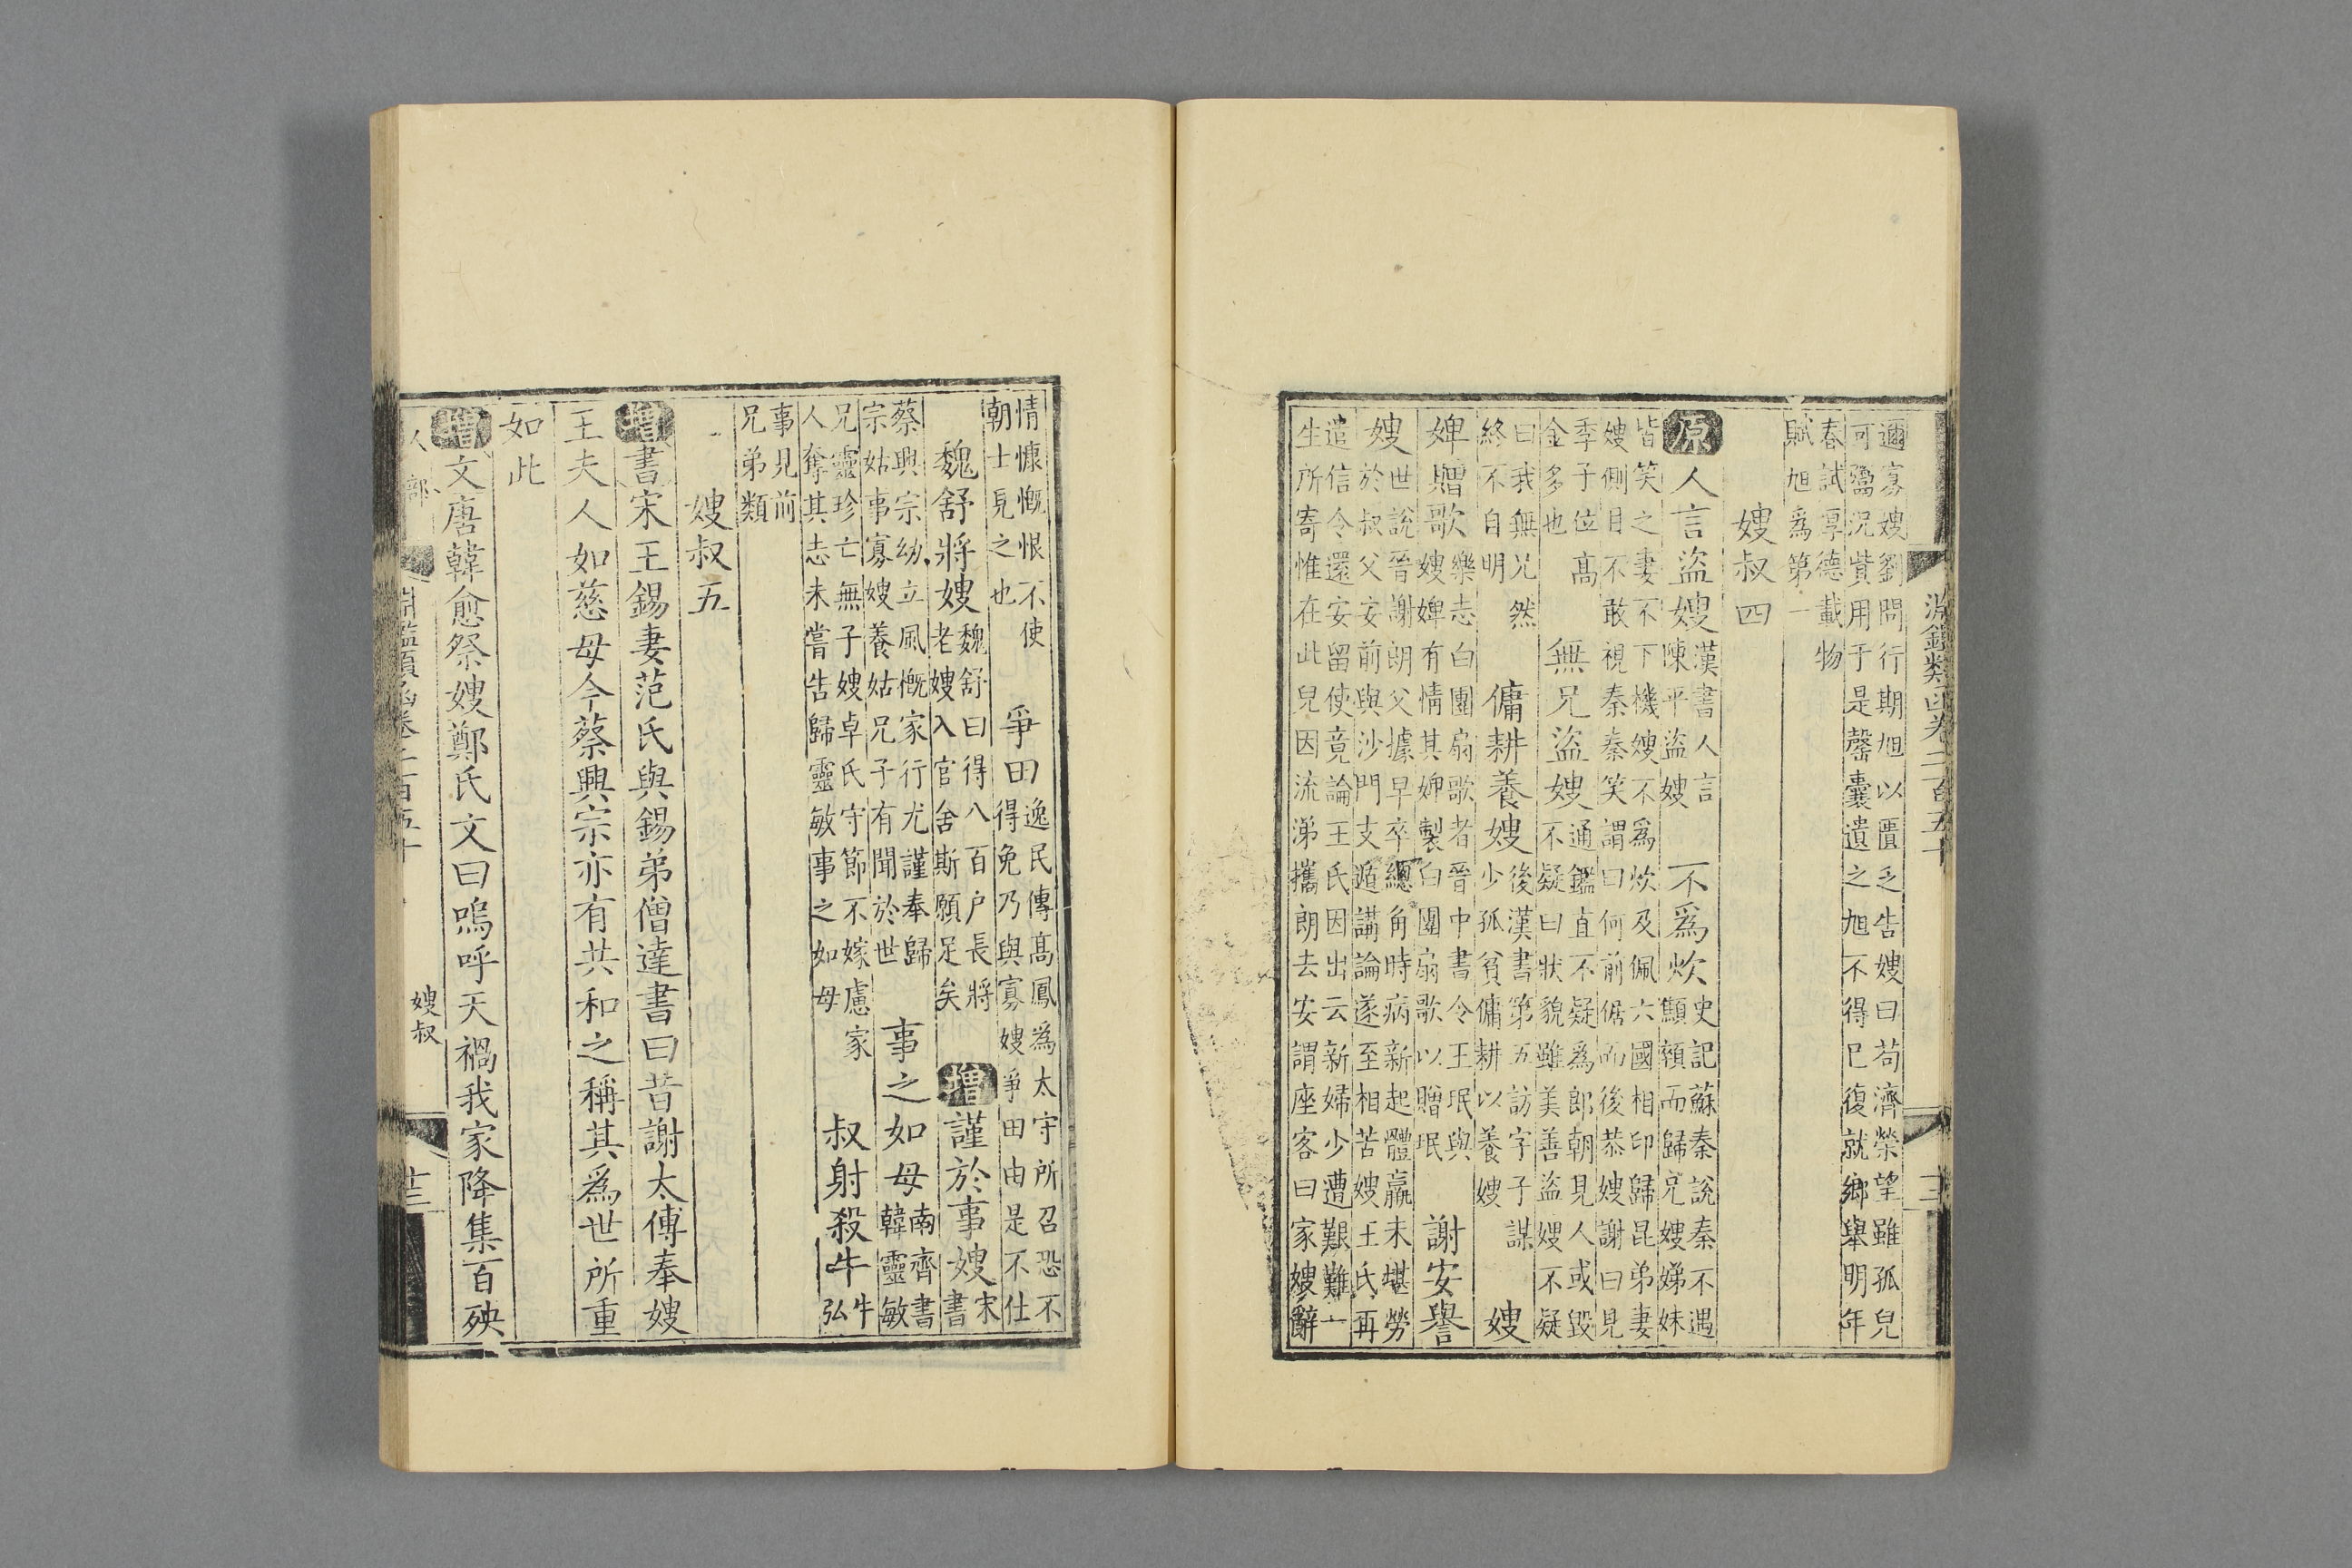 淵鑑類函卷二百五十
邇寡嫂劉問行期旭以匱乏告嫂曰苟濟榮望雖孤兒
可鬻況貲用乎是罄囊遺之旭不得已復就鄉舉明年
春試厚德載物
賦旭爲第一
嫂叔四
原 人言盜嫂 漢書人言陳平盜嫂 不爲炊 史記蘇秦說秦不遇顯頟而歸兄嫂娣妹
皆笑之妻不下機嫂不爲炊及佩六國相印歸昆弟妻
嫂側目不敢視秦秦笑謂曰何前倨而後恭嫂謝曰見
季子位高金多也 無兄盜嫂 通鑑直不疑爲郎朝見人或毀不疑曰狀貌雖美善盜嫂不疑
曰我無兄然終不自明 傭耕養嫂 後漢書第五訪字子謀少孤貧傭耕以養嫂 嫂
婢贈歌 樂志白團扇歌者晉中書令王珉與嫂婢有情其婢製白團扇歌以贈珉 謝安譽
嫂 世說晉謝朗父據早卒總角時病新起體羸未堪勞於叔父安前與沙門支遁講論遂至相苦嫂王氏再
遣信令還安留使竟論王氏因出云新婦少遭艱難一
生所寄惟在此兒因流涕攜朗去安謂座客曰家嫂辭
情慷慨恨不使朝士見之也 爭田 逸民傳高鳳爲太守所召恐不得免乃與寡嫂爭田由是不仕
魏舒將嫂 魏舒曰得八百户長將老嫂入官舍斯願足矣 增 謹於事嫂 宋書
蔡興宗幼立風概家行尤謹奉歸宗姑事寡嫂養姑兄子有聞於世 事之如母 南齊書韓靈敏
兄靈珍亡無子嫂卓氏守節不嫁慮家人奪其志未嘗告歸靈敏事之如母 叔射殺牛 牛弘
事見前兄弟類
嫂叔五
增 書宋王錫妻范氏與錫弟僧達書曰昔謝太傅奉嫂
王夫人如慈母今蔡興宗亦有共和之稱其爲世所重
如此
增 文唐韓愈祭嫂鄭氏文曰嗚呼天禍我家降集百殃
人部 淵鑑類函卷二百五十 嫂叔